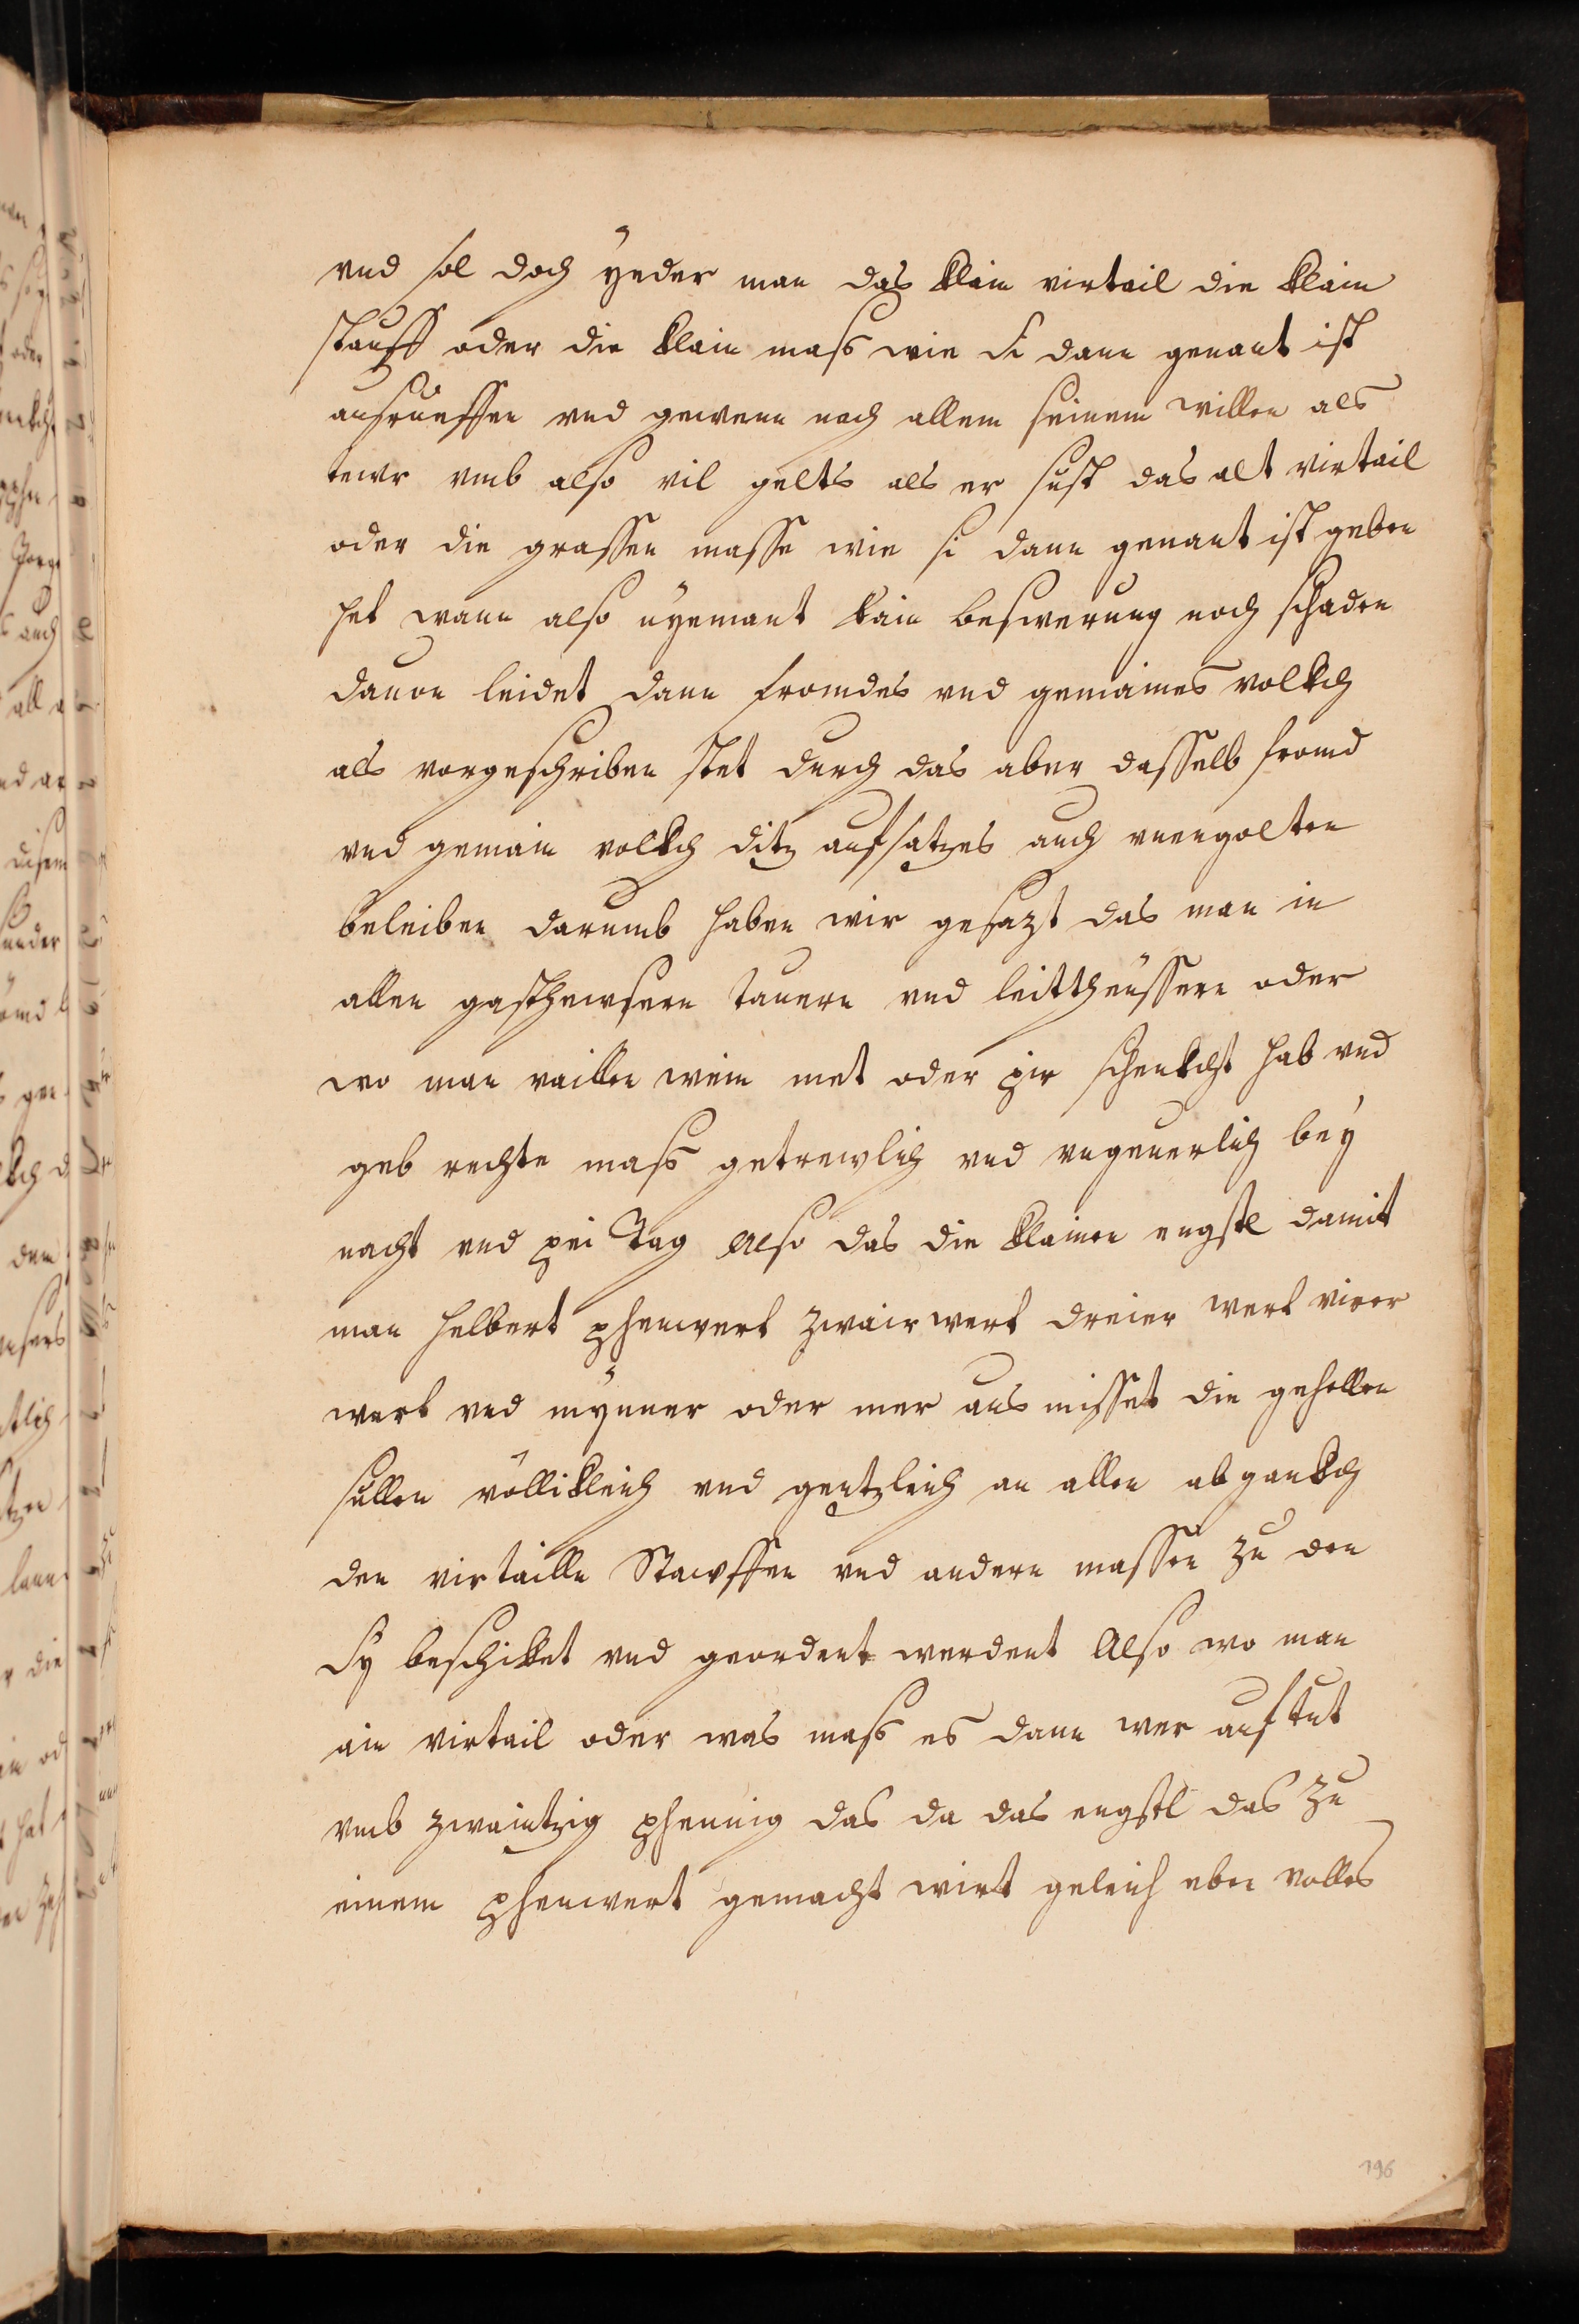 vnd sol doch ÿeder man das klain virtail die klain
stauff oder die klain mass wie Si dann genant ist
ausrueffen vnd gewenn nach allem seinem willen als
tewr vmb also vil gelts als er sust das alt virtail
oder die grassen masse wie si dann genant ist geben
het wann also nÿemant kain beswerung noch schaden
dauon leidet dann fromdes vnd gemaines volkch
als vorgeschriben stet durch das aber dasselb fromd
vnd gemain volkch ditz aufsatzes auch vnengolten
beleiben darumb haben wir gesazt das man in
allen gasthewsern tauern vnd leittheüssern oder
wo man vaillen wein met oder pir schenkcht hab vnd
geb rechte mass getrewlich vnd vngeuerlich beÿ
nacht vnd pei Tag Also das die klainen engstl damit
man helbert phenwert zwair wert dreier wert virer
wert vnd mÿnner oder mer aus misset die gehellen
sullen völlikleich vnd gentzleich an allen abgankch
den virtailln Stawffen vnd andern massen zu den
Sy beschikket vnd geordent werdent Also wo man
ain virtail oder was mass es dann wer auf tut
vmb zwaintzig phennig das da das engstl das zu
einem phenwert gemacht wirt geleich eben volles
196